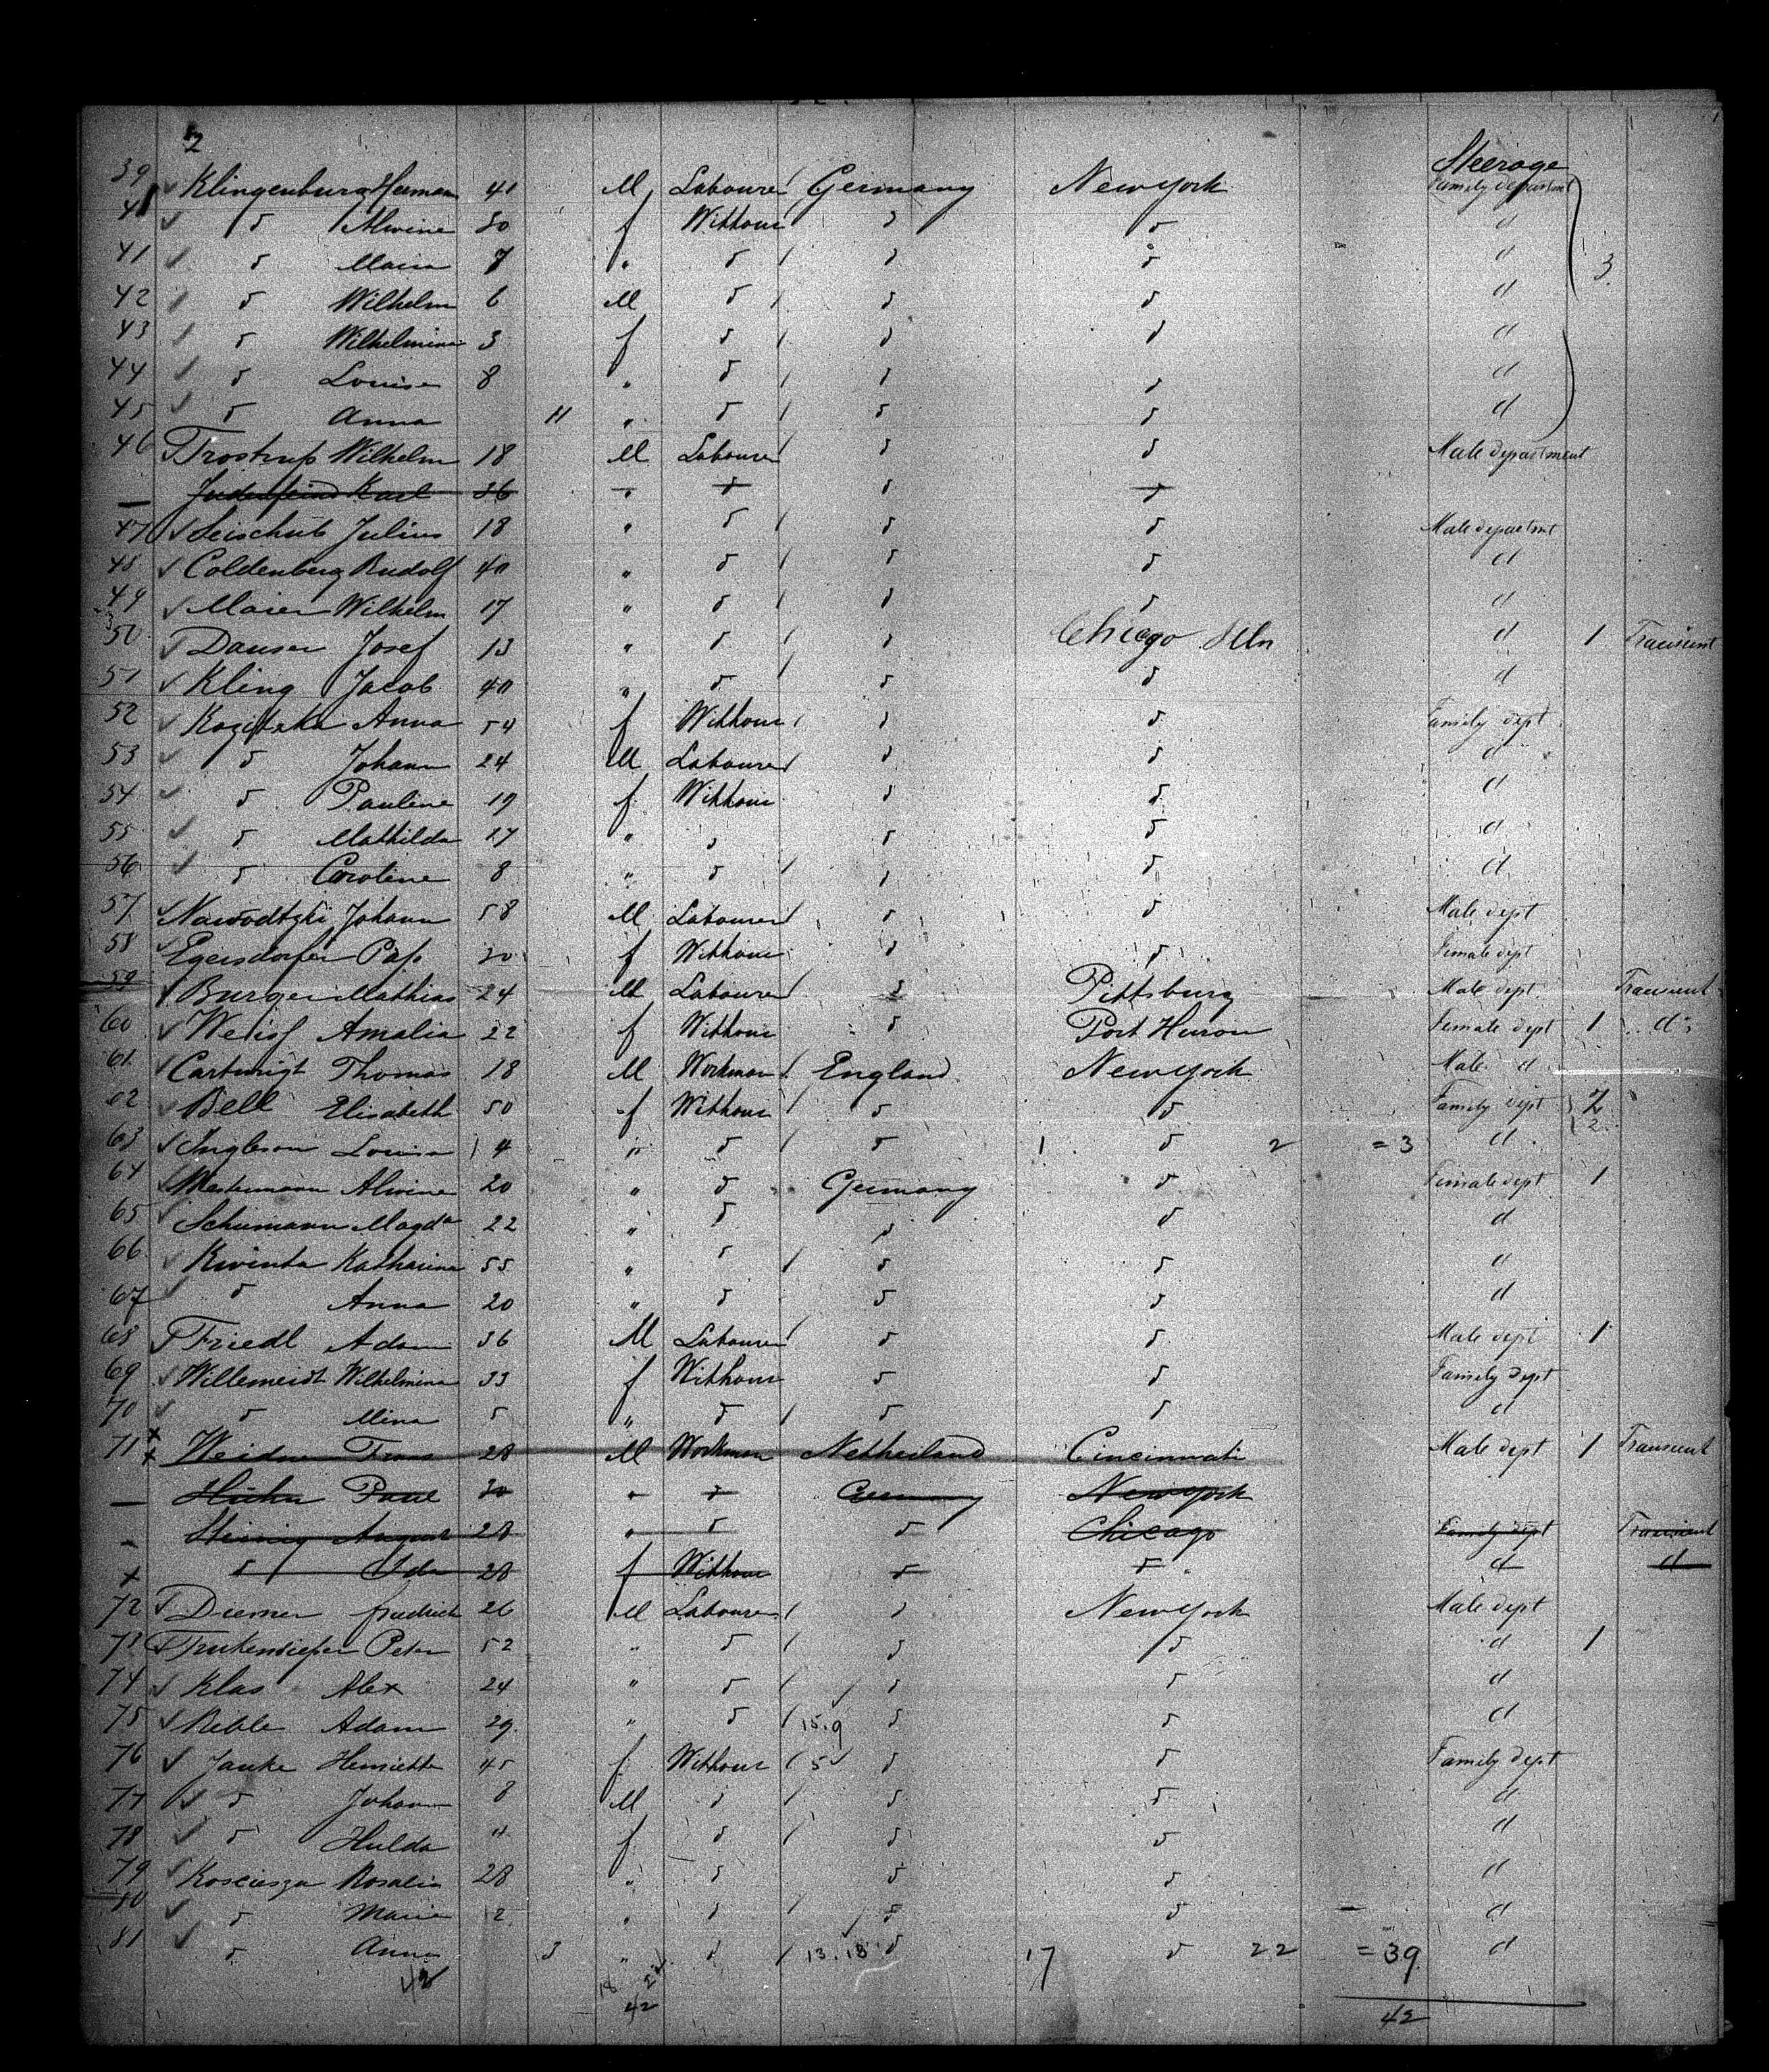 2
Steerage
39 Klingenburg Herman 41 M Labourer Germany New York Family department
Alwine 30 f Without d d d
41 d Maria 7 " d d d d 3
42 d Wilhelm 6 M d d d d
43 d Wilhelmine 3 f d d d d
44 d Louise 8 " d d d d
45 d Anna 11 " d d d d
46 Trostrup Wilhelm 18 M Labourer d d Male department
— Judenfeind Karl 36 " d d d
47 Leischub Julius 18 " d d d Male departmt
48 Coldenberg Rudolf 40 " d d d d
49 Maier Wilhelm 17 " d d d d
50 Dauser Josef 13 " d d Chicago Ills d 1 Transient
51 Kling Jacob 40 " d d d d
52 Anna 54 f Without d d Family dept
53 d Johann 24 M Labourer d d d
54 d Pauline 19 f Without d d d
55 d Mathilda 17 " d d d d
56 d Caroline 8 " d d d d
57 Nawodtzki Johann 58 M Labourer d d Male dept
58 Egersdorfer 30 f Without d d Female dept
59 Burger Mathias 24 M Labourer d Pittsburg Male dept Transient
60 Weiss Amalia 22 f Without d Port Huron Female dept 1 do
61 Cartwright Thomas 18 M Workman England New York Male d
62 Bell Elisabeth 50 f Without d d Family dept 2
63 Ingleson Louisa 4 " d d 1 d 2 = 3 d 2
64 Mestermann Alwine 20 " d Germany d Female dept 1
65 Schumann Magda 22 " d d d d
66 Kwinta Katharina 55 " d d d d
67 d Anna 20 " d d d d
68 Friedl Adam 36 M Labourer d d Male dept 1
69 Willemeidt Wilhelmina 33 f Without d d Family dept
70 d Mina 5 " d d d d
71 Weidner Frans 28 M Workman Netherland Cincinnati Male dept 1 Transient
— Huhn Paul 30 " d Germany New York
— Steinig August 28 " d d Chicago Family dept Transient
+ d Ida 28 f Without d d d d
72 Diemer friedrich 26 M Labourer d New York Male dept
73 Peter 52 " d d d d 1
74 Klas Alex 24 " d d d d
75 Reble Adam 29 " d 15.9 d d d
76 Janke Henriette 45 f Without 5 d d Family dept
77 d Johann 8 M d d d d
78 d Hulda 4 f d d d d
79 Kosciesza Rosalie 28 " d d d d
80 d Marie 2 " d d d d
81 d Anna 3 " d 13.13 d 17 d 22 = 39 d
42 18 24
42 42